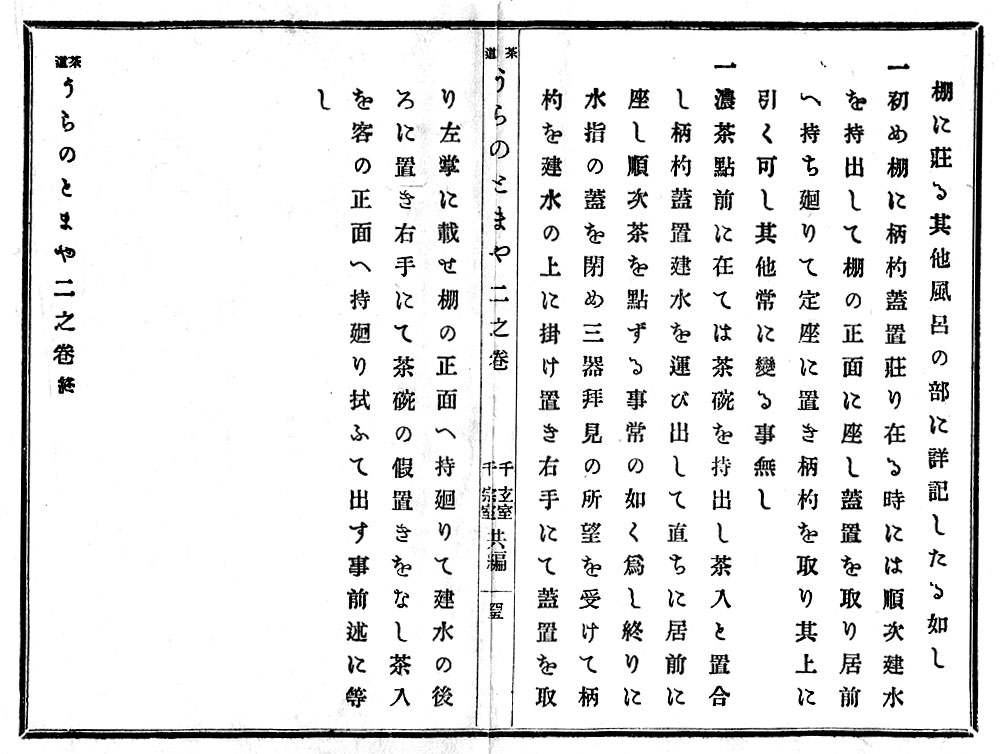 棚に莊る其他風呂の部に詳記したる如し
一初め棚に柄杓蓋置莊り在る時には順次建水
を持出して棚の正面に座し蓋置を取り居前
へ持ち廻りて定座に置き柄杓を取り其上に
引く可し其他常に變る事無し
一濃茶點前に在ては茶碗を持出し茶入と置合
し柄杓蓋置建水を運び出して直ちに居前に
座し順次茶を點ずる事常の如く爲し終りに
水指の蓋を閉め三器拜見の所望を受けて柄
杓を建水の上に掛け置き右手にて蓋置を取
茶道 うらのとまや 二之卷 千玄室 千宗室 共編
り左掌に載せ棚の正面へ持廻りて建水の後
ろに置き右手にて茶碗の假置きをなし茶入
を客の正面へ持廻り拭ふて出す事前述に等
し
茶道 うらのとまや 二之卷 終